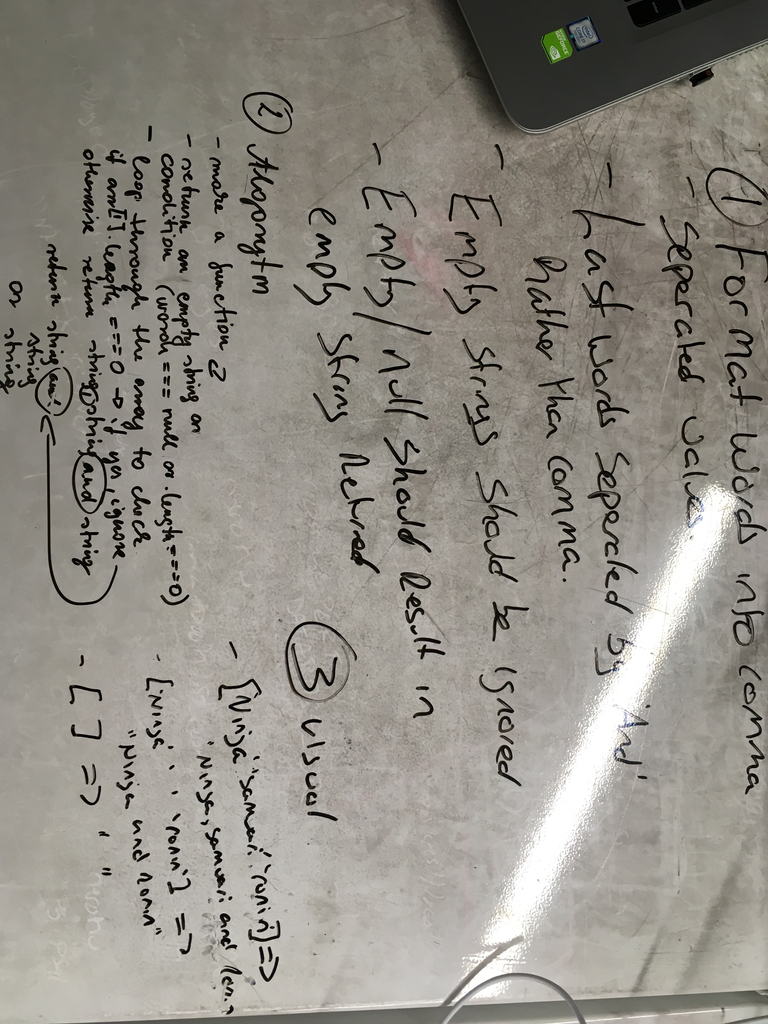 ① Format words into comma
- Seperated values.
- Last words Seperated by 'And'
Rather than comma.
- Empty strings should be ignored
- Empty/null should Result in
empty string Retired
② Alogorytm
- make a function
- return an empty string on
condition (words === null or .length===0)
- loop through the array to check
if arr[i].length === 0 → if yes, ignore
otherwise return string, string and string
return string and
string
or string
③ Visual
- ['Ninja' 'samurai' 'ronin'] =>
'Ninja, samurai and
- ['Ninja' ' ' 'ronin'] =>
"Ninja and ronin"
- [ ] => " "
GEFORCE
intel